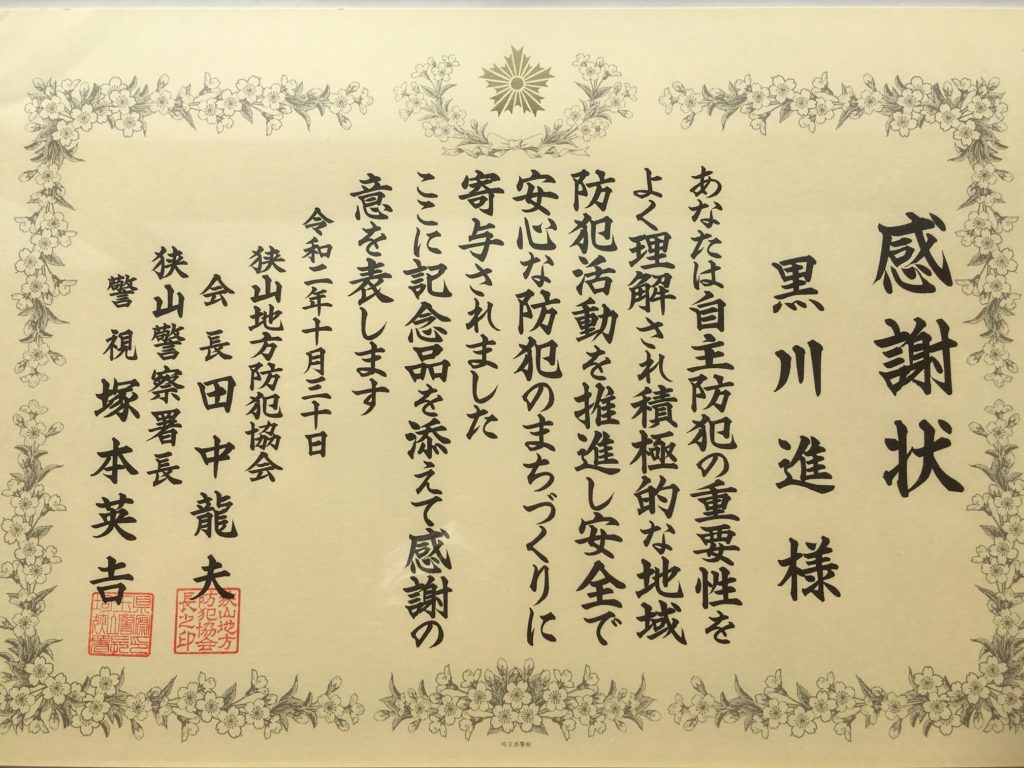 感謝状
黒川進様
あなたは自主防犯の重要性を
よく理解され積極的な地域
防犯活動を推進し安全で
安心な防犯のまちづくりに
寄与されました
ここに記念品を添えて感謝の
意を表します
令和二年十月三十日
狭山地方防犯協会
会長田中龍夫
狭山地方
防犯協会
長之印
狭山警察署長
警視塚本英𠮷
埼玉県警察